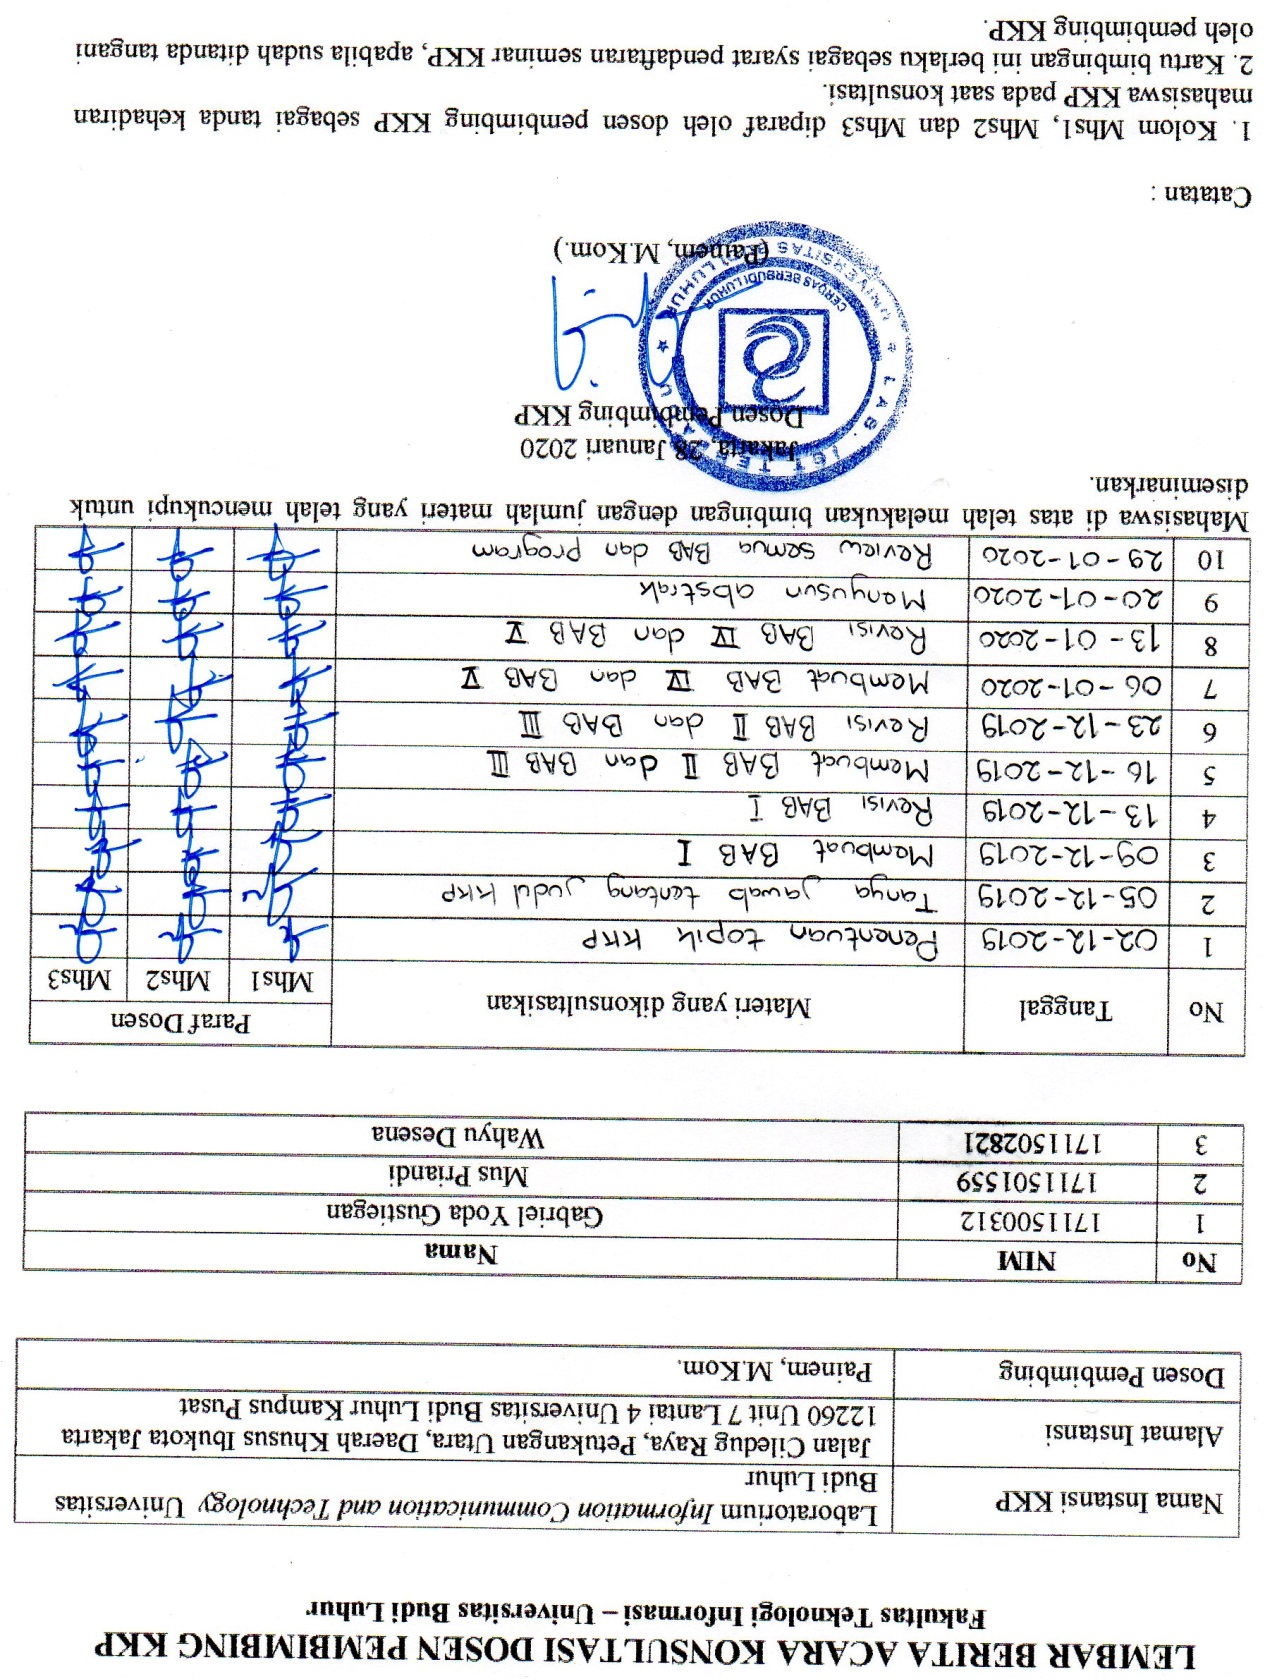 LEMBAR BERITA ACARA KONSULTASI DOSEN PEMBIMBING KKP
Fakultas Teknologi Informasi – Universitas Budi Luhur
Nama Instansi KKP
Laboratorium Information Communication and Technology Universitas
Budi Luhur
Alamat Instansi
Jalan Ciledug Raya, Petukangan Utara, Daerah Khusus Ibukota Jakarta
12260 Unit 7 Lantai 4 Universitas Budi Luhur Kampus Pusat
Dosen Pembimbing Painem, M.Kom.
No NIM Nama
1 1711500312 Gabriel Yoda Gustiegan
2 1711501559 Mus Priandi
3 1711502821 Wahyu Desena
No Tanggal Materi yang dikonsultasikan Paraf Dosen
Mhs1 Mhs2 Mhs3
1 02-12-2019 Penentuan topik KKP
2 05-12-2019 Tanya jawab tentang judul KKP
3 09-12-2019 Membuat BAB I
4 13-12-2019 Revisi BAB I
5 16-12-2019 Membuat BAB II dan BAB III
6 23-12-2019 Revisi BAB II dan BAB III
7 06-01-2020 Membuat BAB IV dan BAB V
8 13-01-2020 Revisi BAB IV dan BAB V
9 20-01-2020 Menyusun abstrak
10 29-01-2020 Review semua BAB dan program
Mahasiswa di atas telah melakukan bimbingan dengan jumlah materi yang telah mencukupi untuk
diseminarkan.
Jakarta, 28 Januari 2020
Dosen Pembimbing KKP
LAB. ICT TERPADU
UNIVERSITAS BUDI LUHUR
CERDAS BERBUDI LUHUR
(Painem, M.Kom.)
Catatan :
1. Kolom Mhs1, Mhs2 dan Mhs3 diparaf oleh dosen pembimbing KKP sebagai tanda kehadiran
mahasiswa KKP pada saat konsultasi.
2. Kartu bimbingan ini berlaku sebagai syarat pendaftaran seminar KKP, apabila sudah ditanda tangani
oleh pembimbing KKP.